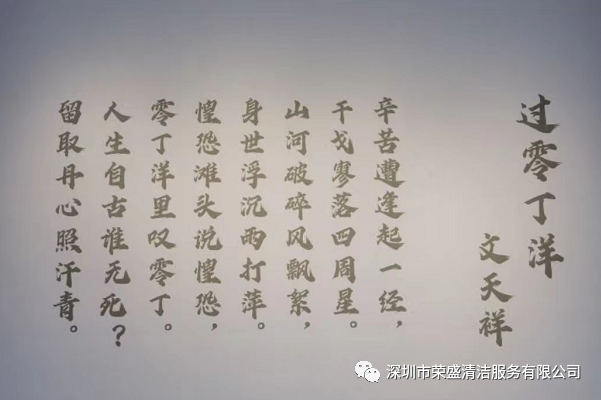 过零丁洋
文天祥
辛苦遭逢起一经，
干戈寥落四周星。
山河破碎风飘絮，
身世浮沉雨打萍。
惶恐滩头说惶恐，
零丁洋里叹零丁。
人生自古谁无死？
留取丹心照汗青。
深圳市荣盛清洁服务有限公司